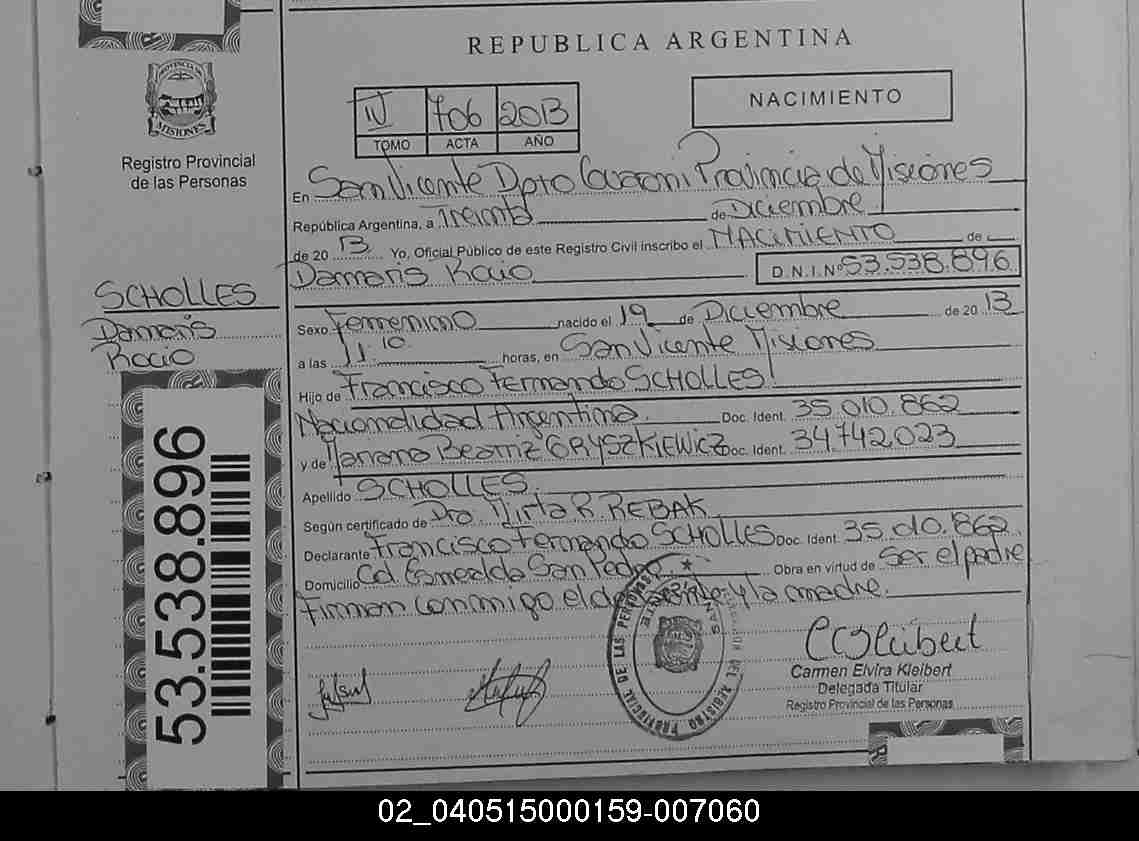 REPUBLICA ARGENTINA
PROVINCIA DE
MISIONES
Registro Provincial
de las Personas
IV 706 2013
TOMO ACTA AÑO
NACIMIENTO
En San Vicente Dpto Guarani Provincia de Misiones
República Argentina, a Treinta de Diciembre
de 20 13 Yo, Oficial Público de este Registro Civil inscribo el NACIMIENTO de
Damaris Rocio D.N.I.Nº 53.538.896
SCHOLLES
Damaris
Rocio
Sexo Femenino nacido el 19 de Diciembre de 20 13
a las 11:10 horas, en San Vicente Misiones
Hijo de Francisco Fernando SCHOLLES
Nacionalidad Argentina Doc. Ident. 35.010.862
y de Mariana Beatriz GRYSZKIEWICZ Doc. Ident. 34.742.023
Apellido SCHOLLES
Según certificado de Dra. Mirta R. REBAK
Declarante Francisco Fernando SCHOLLES Doc. Ident. 35.010.862
Domicilio Col. Esmeralda San Pedro Obra en virtud de Ser el padre
Firman conmigo el declarante y la madre.
53.538.896
Carmen Elvira Kleibert
Delegada Titular
Registro Provincial de las Personas
02_040515000159-007060